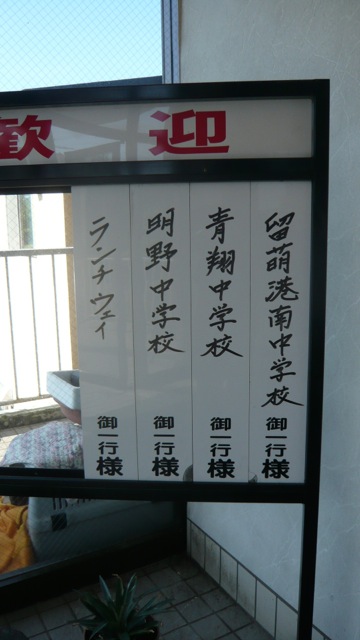 歓迎
留萌港南中学校 御一行様
青翔中学校 御一行様
明野中学校 御一行様
ランチウェイ 御一行様